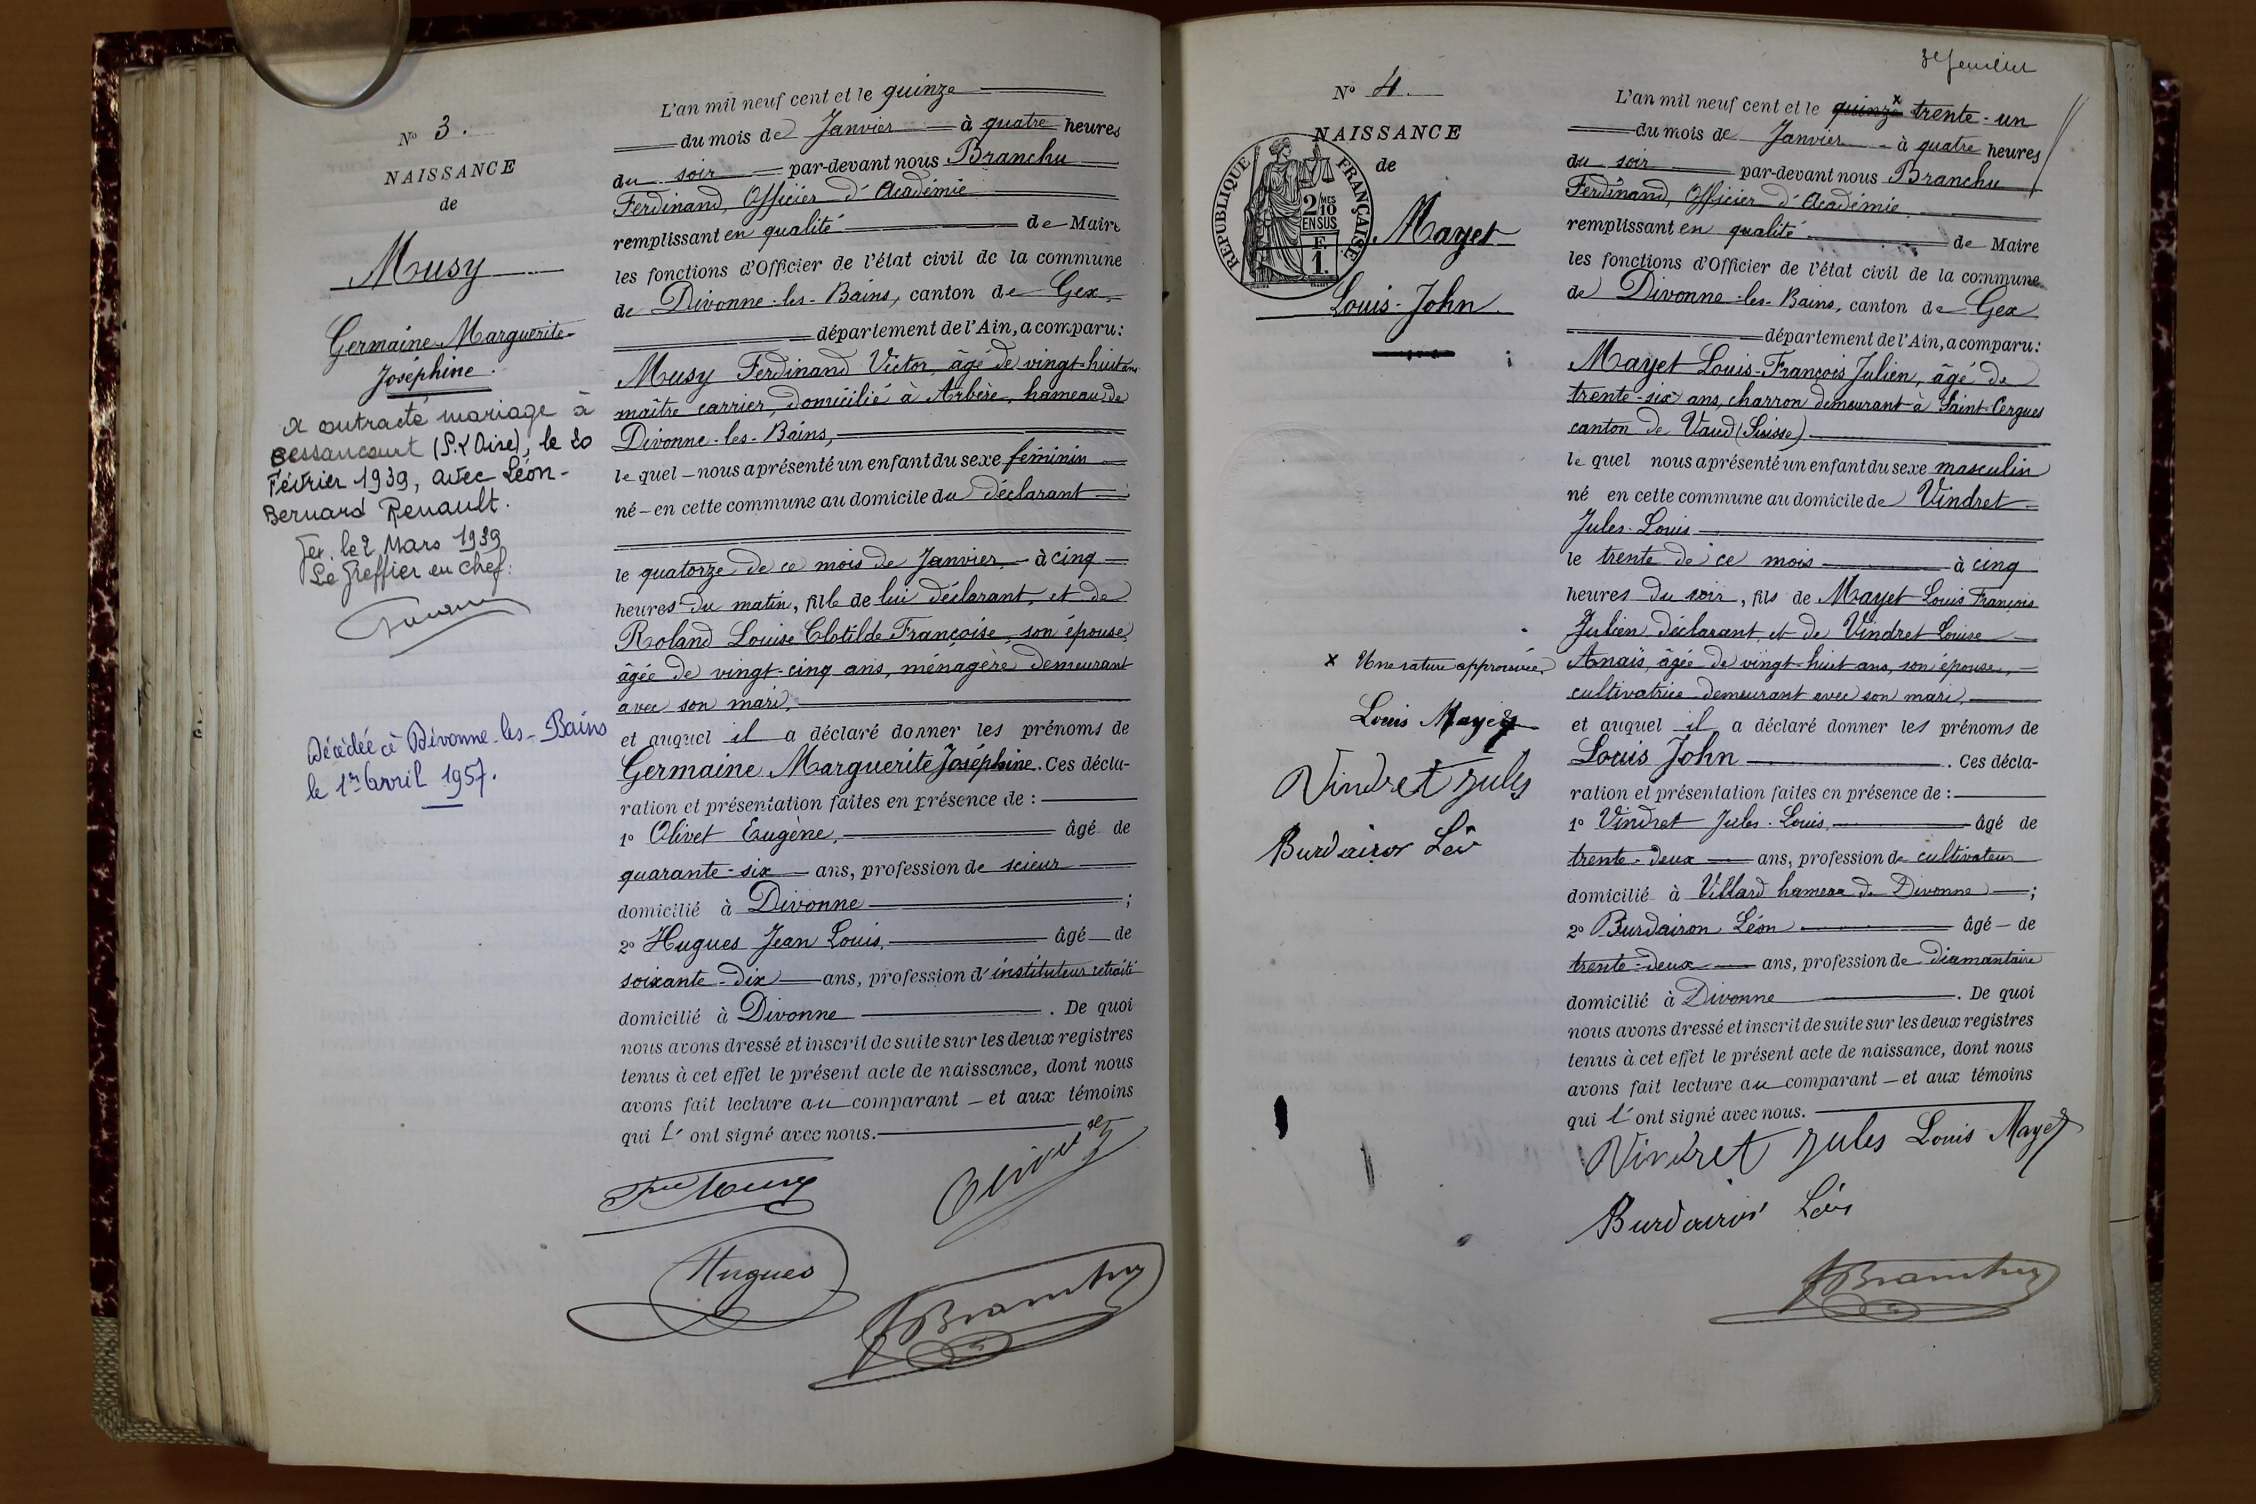 N° 3.
NAISSANCE
de
Musy
Germaine Marguerite-
Joséphine.
A contracté mariage à
Bessancourt (S. & Oise), le 20
Février 1939, avec Léon-
Bernard Renault.
Gex, le 2 Mars 1939
Le Greffier en chef:
Décédée à Divonne-les-Bains
le 1er Avril 1957.
L'an mil neuf cent et le quinze
du mois de Janvier à quatre heures
du soir par-devant nous Branchu
Ferdinand, Officier d'Académie
remplissant en qualité de Maire
les fonctions d'Officier de l'état civil de la commune
de Divonne-les-Bains, canton de Gex,
département de l'Ain, a comparu:
Musy Ferdinand Victor, âgé de vingt-huit ans
maître carrier, domicilié à Arbère, hameau de
Divonne-les-Bains,
lequel nous a présenté un enfant du sexe féminin
né en cette commune au domicile du déclarant
le quatorze de ce mois de Janvier à cinq
heures du matin, fille de lui déclarant, et de
Roland Louise Clotilde Françoise, son épouse,
âgée de vingt-cinq ans, ménagère demeurant
avec son mari,
et auquel il a déclaré donner les prénoms de
Germaine Marguerite Joséphine. Ces décla-
ration et présentation faites en présence de :
1° Olivet Eugène, âgé de
quarante-six ans, profession de scieur
domicilié à Divonne ;
2° Hugues Jean Louis, âgé de
soixante-dix ans, profession d'instituteur retraité
domicilié à Divonne . De quoi
nous avons dressé et inscrit de suite sur les deux registres
tenus à cet effet le présent acte de naissance, dont nous
avons fait lecture au comparant et aux témoins
qui l'ont signé avec nous.
Olivet
Hugues
Branchu
3e feuillet
N° 4.
NAISSANCE
de
RÉPUBLIQUE FRANÇAISE
2 MES
10
EN SUS
F.
1.
Mayet
Louis-John
x Une rature approuvée
Louis Mayet
Vindret Jules
Burdairon Léon
L'an mil neuf cent et le quinze x trente-un
du mois de Janvier à quatre heures
du soir par-devant nous Branchu
Ferdinand, Officier d'Académie
remplissant en qualité de Maire
les fonctions d'Officier de l'état civil de la commune
de Divonne-les-Bains, canton de Gex
département de l'Ain, a comparu:
Mayet Louis-François Julien, âgé de
trente-six ans, charron demeurant à Saint-Cergues
canton de Vaud (Suisse)
lequel nous a présenté un enfant du sexe masculin
né en cette commune au domicile de Vindret
Jules-Louis
le trente de ce mois à cinq
heures du soir, fils de Mayet Louis François
Julien, déclarant et de Vindret Louise
Anaïs, âgée de vingt-huit ans, son épouse,
cultivatrice demeurant avec son mari,
et auquel il a déclaré donner les prénoms de
Louis John . Ces décla-
ration et présentation faites en présence de :
1° Vindret Jules-Louis, âgé de
trente-deux ans, profession de cultivateur
domicilié à Villard hameau de Divonne ;
2° Burdairon Léon âgé de
trente-deux ans, profession de Diamantaire
domicilié à Divonne . De quoi
nous avons dressé et inscrit de suite sur les deux registres
tenus à cet effet le présent acte de naissance, dont nous
avons fait lecture au comparant et aux témoins
qui l'ont signé avec nous.
Vindret Jules Louis Mayet
Burdairon Léon
Branchu